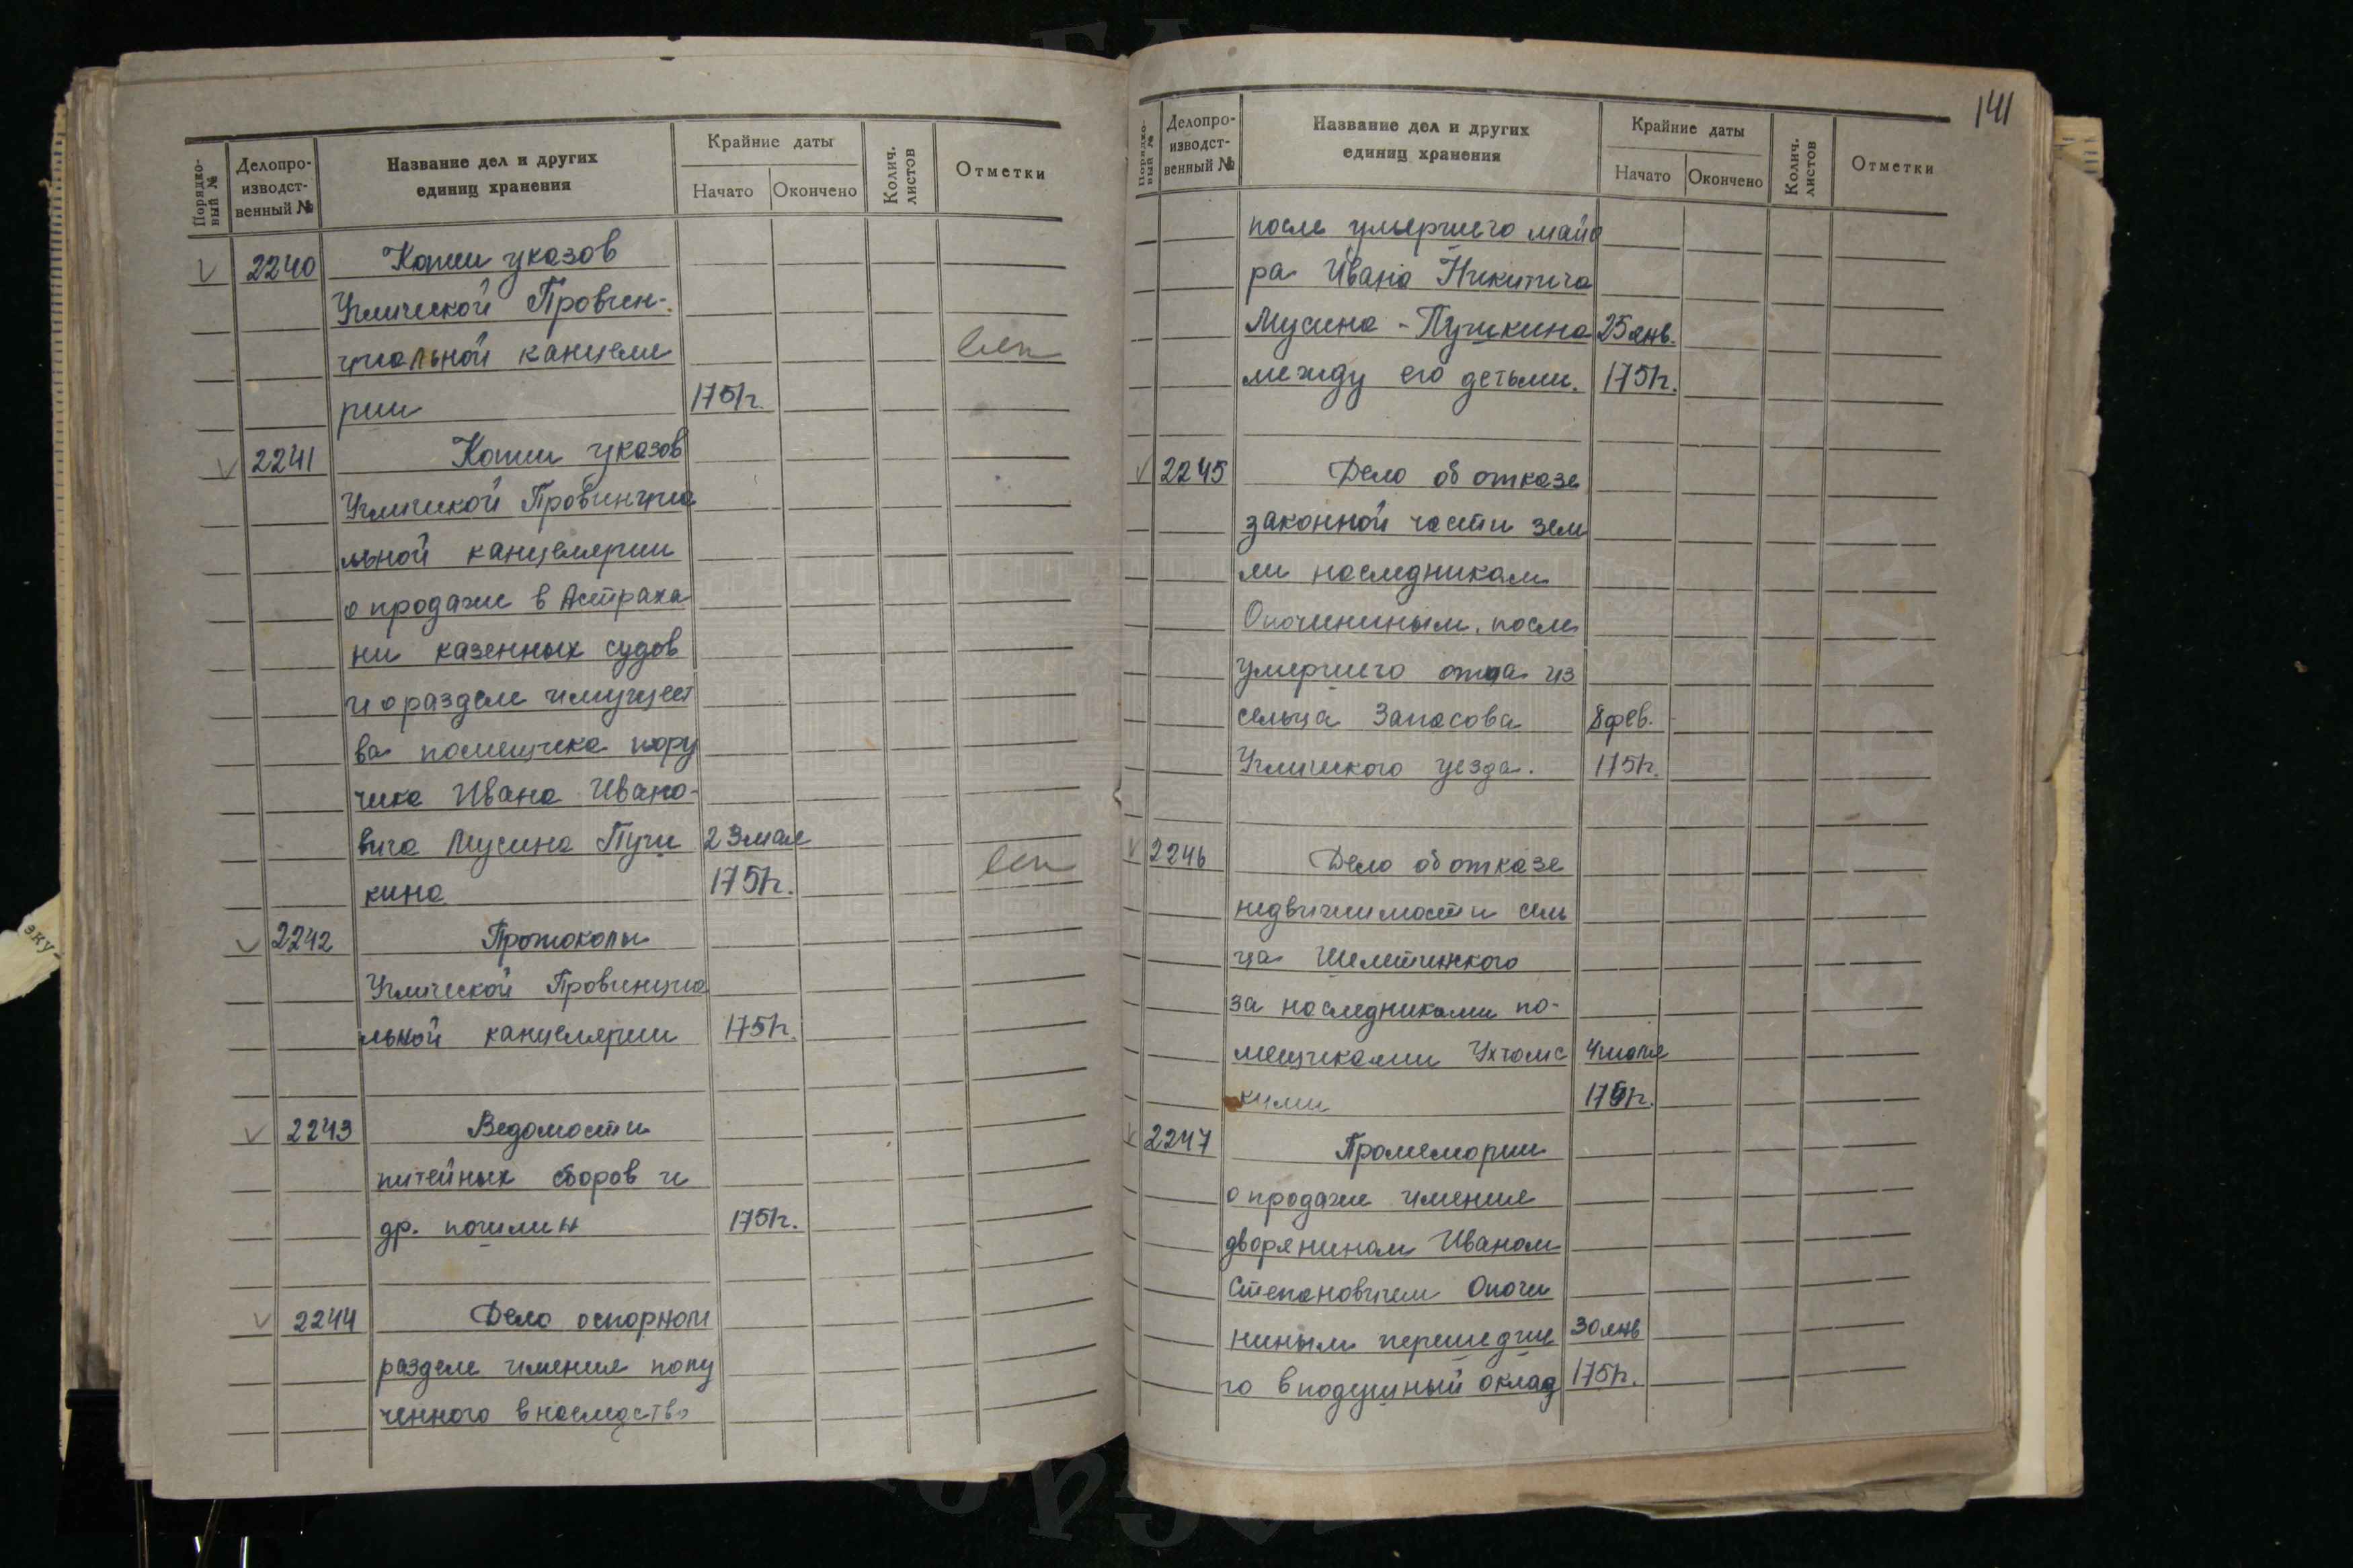 Порядко-
вый №
Делопро-
изводст-
венный №
Название дел и других
единиц хранения
Крайние даты
Начато
Окончено
Колич.
листов
Отметки
2240
Копии указов
Угличской Провин-
циальной канцеля
рии
1751г.
2241
Копии указов
Угличской Провинциа
льной канцелярии
о продаже в Астраха
ни казенных судов
и о разделе имущест
ва помещика пору
чика Ивана Ивано-
вича Мусина Пуш
23 мая
кина
1751г.
2242
Протоколы
Угличской Провинциа
льной канцелярии
1751г.
2243
Ведомости
питейных сборов и
др. пошлин
1751г.
2244
Дело о спорном
разделе имения полу
ченного в наследство
141
Порядко-
вый №
Делопро-
изводст-
венный №
Название дел и других
единиц хранения
Крайние даты
Начато
Окончено
Колич.
листов
Отметки
после умершего майо
ра Ивана Никитича
Мусина-Пушкина
25 янв.
между его детьми.
1751г.
2245
Дело об отказе
законной части зем
ли наследникам
Опочининым, после
умершего отца из
сельца Запасова
8 фев.
Угличского уезда.
1751г.
2246
Дело об отказе
недвижимости сель
ца
за наследниками по-
мещиками Ухтомс
4 июля
кими
1751г.
2247
Промемории
о продаже имения
дворянином Иваном
Степановичем Опочи
ниным перешедше
30 янв
го в подушный оклад
1751г.